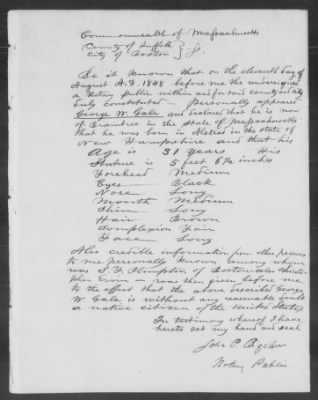 Commonwealth of Massachusetts
County of Suffolk
City of Boston } Ss.
Be it known that on the eleventh day of
August A.D. 1848 before me the undersigned
a Notary Public within and for said county and city
duly constituted — Personally appeared
George W. Gale and declared that he is now
of Braintree in the State of Massachusetts
that he was born in Alstead in the state of
New Hampshire and that his
Age is 31 years His
Stature is 5 feet 6¾ inches
Forehead Medium
Eyes Black
Nose Long
Mouth Medium
Chin Long
Hair Brown
Complexion Fair
Face Long
Also credible information from other persons
to me personally known among whom
was S. F. Plimpton of Boston
was then given before me
to the effect that the above described George
W Gale is without any reasonable doubt
a native citizen of the United States
In testimony whereof I have
hereto set my hand and seal
John P Bigelow
Notary Public